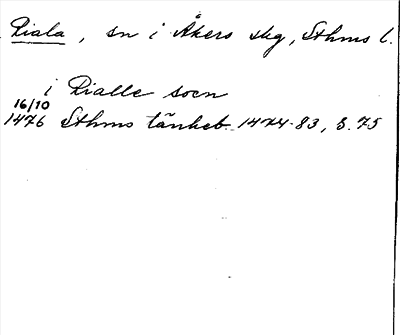 Riala, sn i Åkers skg, Sthms l.
i Rialle socn
16/10
1476 Sthms tänkeb. 1474-83, s. 75